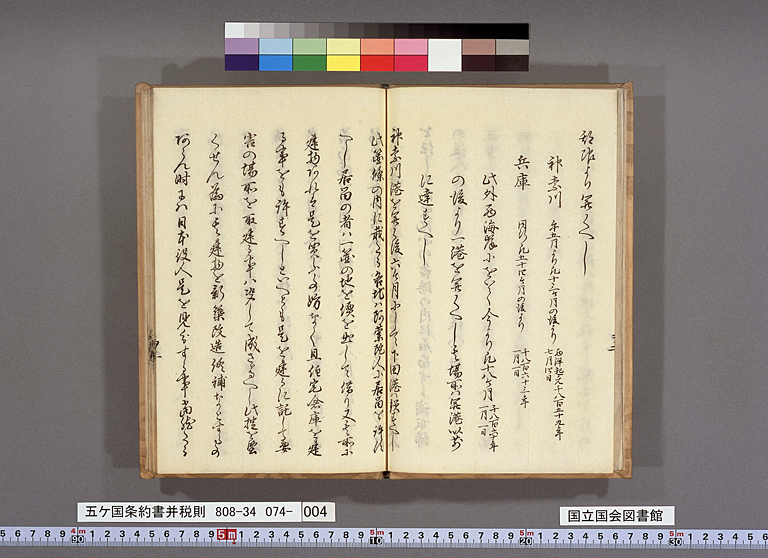 神奈川 午五月より凡十三ケ月の後より 西洋紀元千八百五十九年
七月四日
兵庫 同断凡五十四ケ月の後より 千八百六十三年
一月一日
此外西海岸におゐて今より凡十八ケ月 千八百六十年
一月一日
の後より一港を開くへし其場所ハ開港以前
に達すへし
神奈川港を開く後六ケ月にして下田港ハ鎖すへし
此箇條の内に載たる各地ハ阿蘭陀人に居留を許すへし
居留の者ハ一箇の地を價を出して借り又其所に
建物あれは是を買ふ事妨なく且住宅倉庫を建
る事をも許すへしといへとも是を建るに託して要
害の場所を取建る事ハ決して成さるへし此掟を堅
くせん為に其建物を新築改造修補なとする事
あらん時にハ日本役人是を見分する事当然たる
五ケ国条約書并税則 808-34 074- 004
国立国会図書館